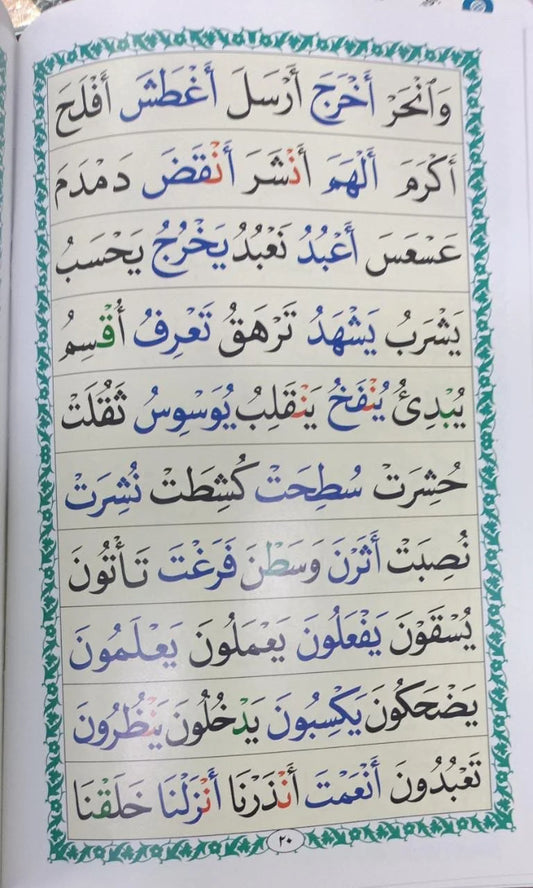 وَٱنْحَرْ أَخْرَجَ أَرْسَلَ أَغْطَشَ أَفْلَحَ
أَكْرَمَ أَلْهَمَ أَنْشَرَ أَنْقَضَ دَمْدَمَ
عَسْعَسَ أَعْبُدُ نَعْبُدُ يَخْرُجُ يَحْسَبُ
يَشْرَبُ يَشْهَدُ تَرْهَقُ تَعْرِفُ أُقْسِمُ
يُبْدِئُ يُنْفَخُ يَنْقَلِبُ يُوَسْوِسُ ثَقُلَتْ
حُشِرَتْ سُطِحَتْ كُشِطَتْ نُشِرَتْ
نُصِبَتْ أَثَرْنَ وَسَطْنَ فَرَغْتَ تَأْتُونَ
يُسْقَوْنَ يَفْعَلُونَ يَعْمَلُونَ يَعْلَمُونَ
يَضْحَكُونَ يَكْسِبُونَ يَدْخُلُونَ يَنْظُرُونَ
تَعْبُدُونَ أَنْعَمْتَ أَنْذَرْنَا أَنْزَلْنَا خَلَقْنَا
٢٠